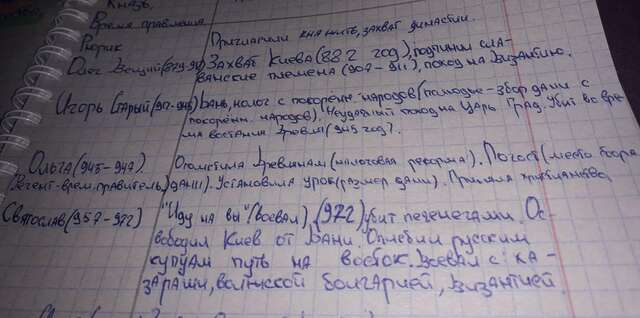 Князь.
Время правления
Рюрик Пригласили княжить, захват династии.
Олег Вещий(879-912) Захват Киева(882 год), подчинил сла-
вянские племена (907-911), поход на Византию.
Игорь Старый(912-945) Дань, налог с покорённ. народов(полюдье-збор дани с
покорённ. народов). Неудачный поход на Царь Град. Убит во вре-
мя востания Древлян(945 год).
Ольга(945-947) Отомстила древлянам(налоговая реформа). Погост(место сбора
Регент-врем.правитель) дани). Установила урок(размер дани). Приняла христианство
Святослав(957-972) "Иду на вы"(воевал), (972) убит печенегами. Ос-
вободил Киев от Дани. Отлебил русским
купцам путь на восток. Воевал с: ха-
зарами, волжской болгарией, Византией.